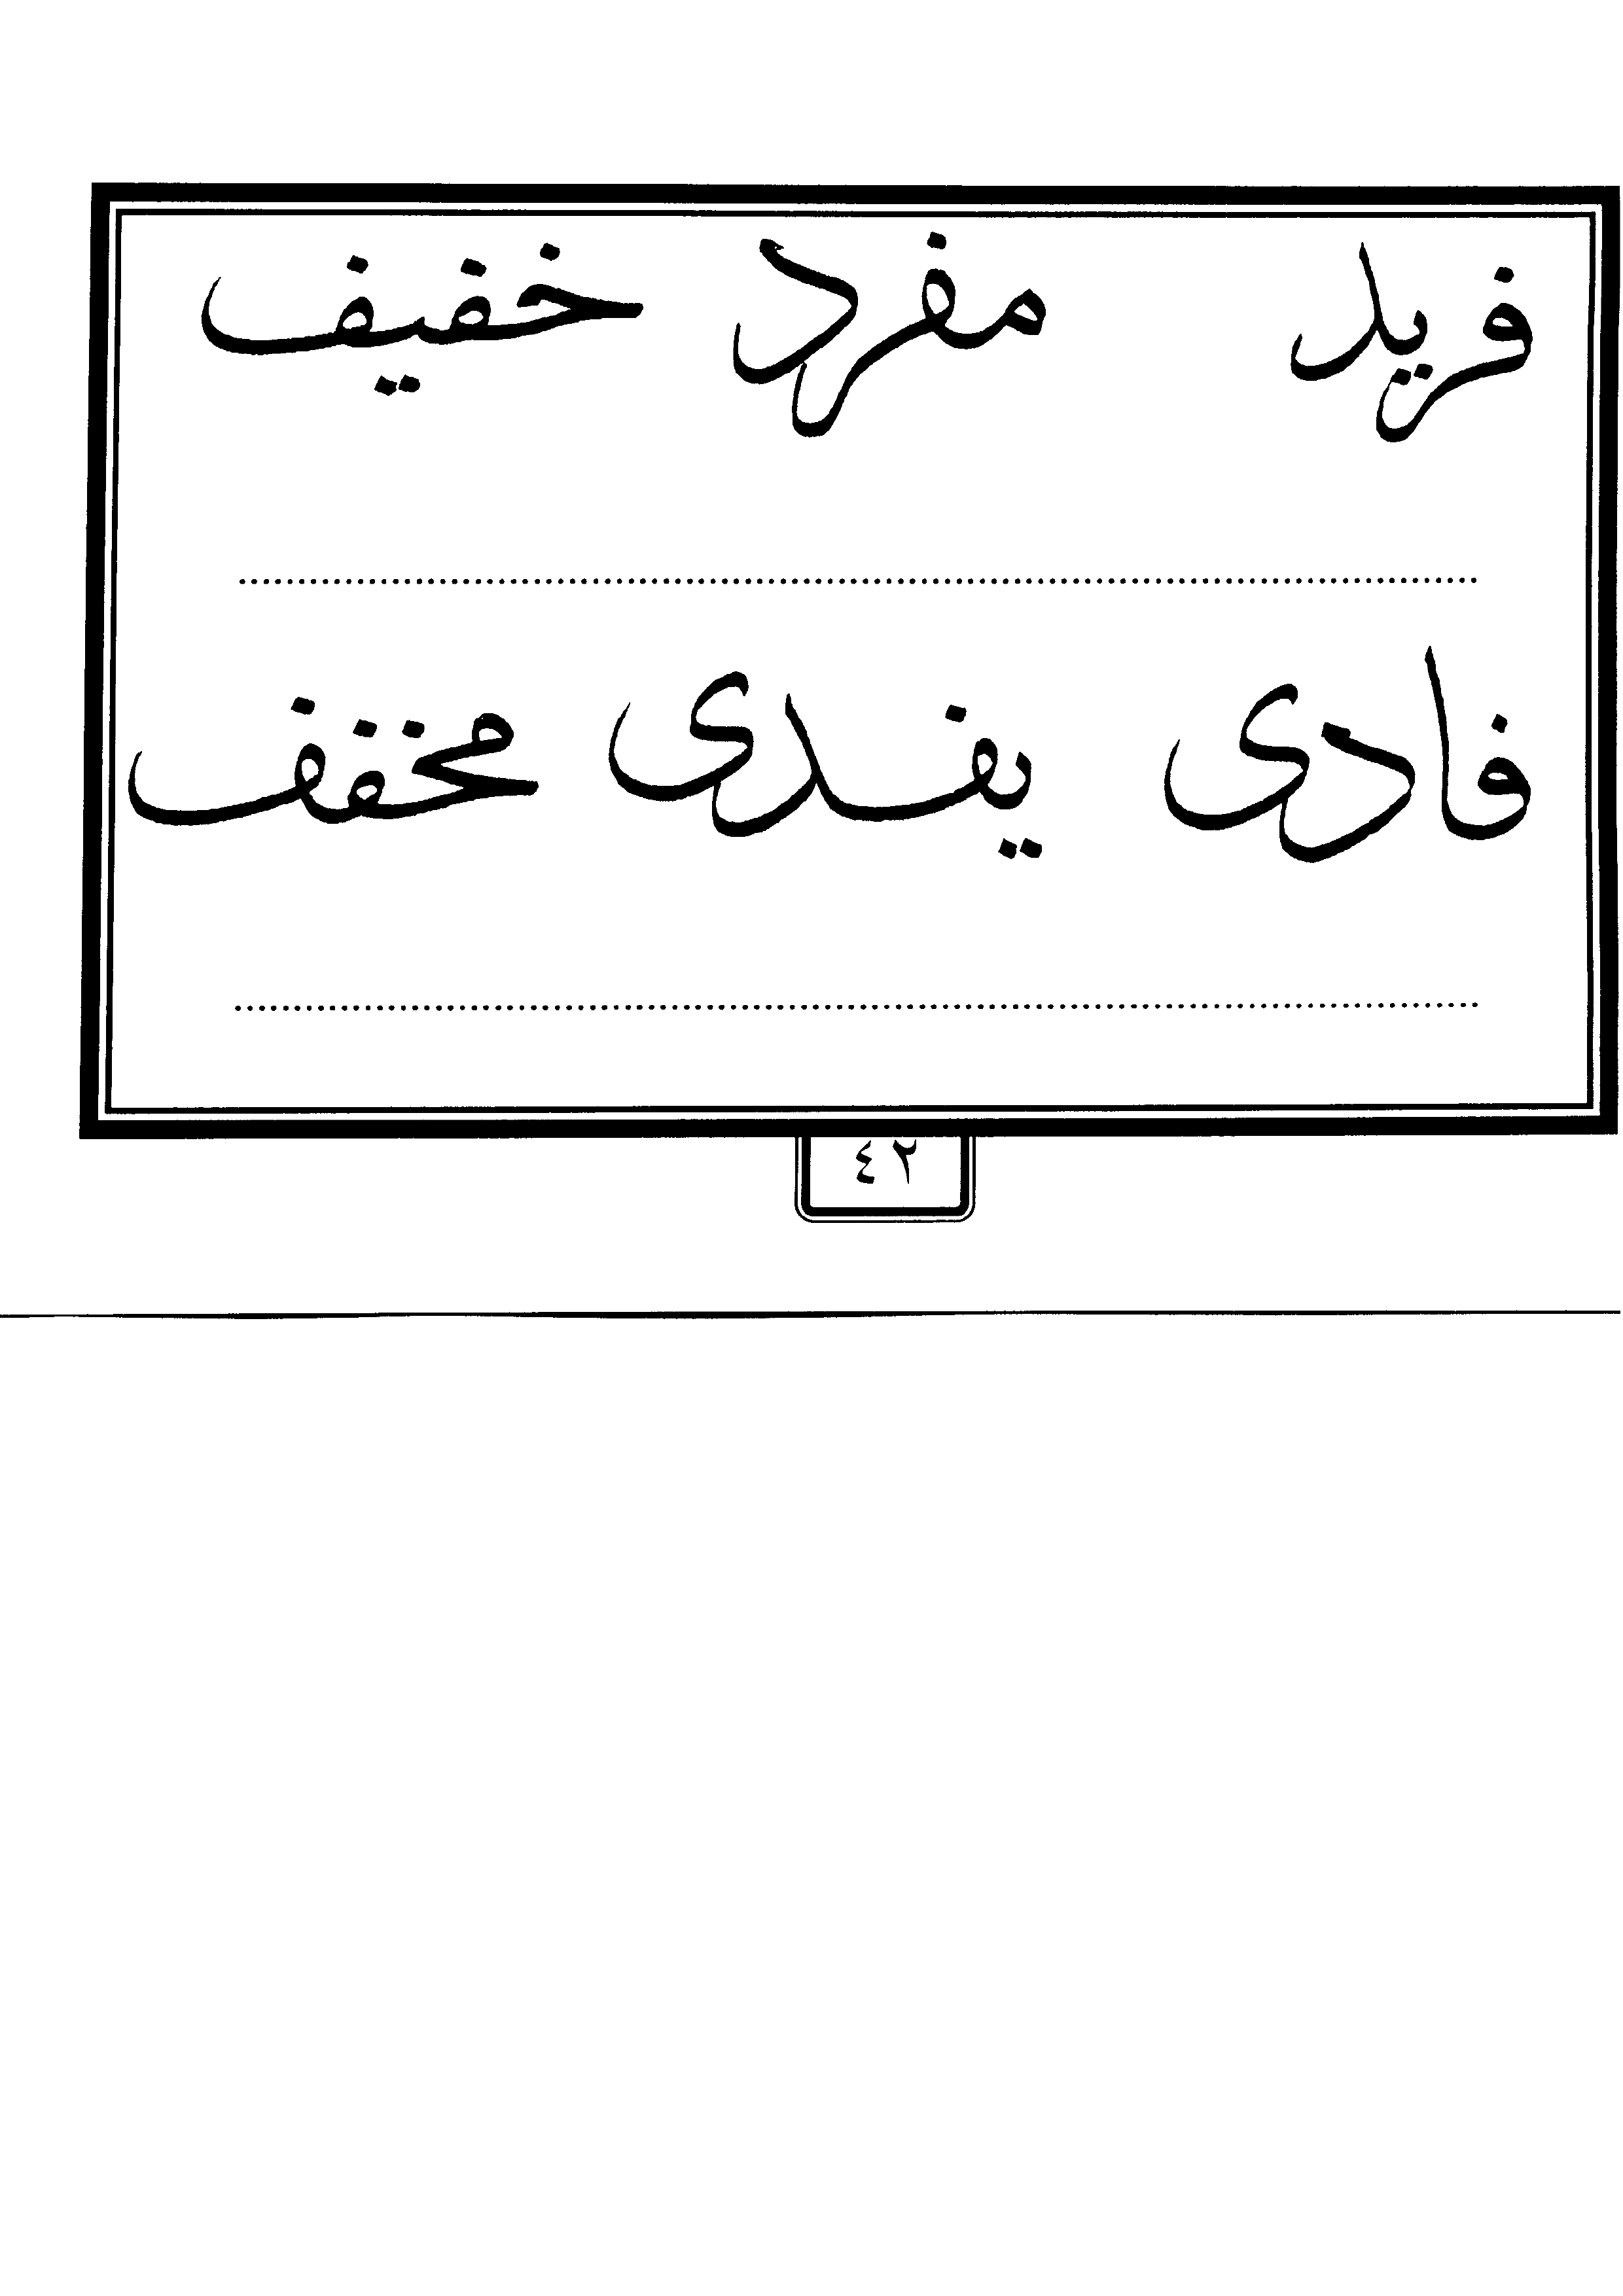 فريد مفرد خفيف
فادى يفندى مخفف
٤٢